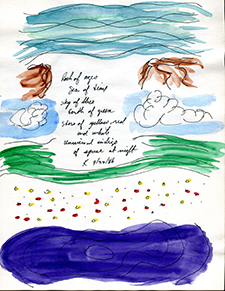 Rock of ages
Sea of time
sky of blue
Earth of green
stars of yellow, red
and white
Universal
of space at night